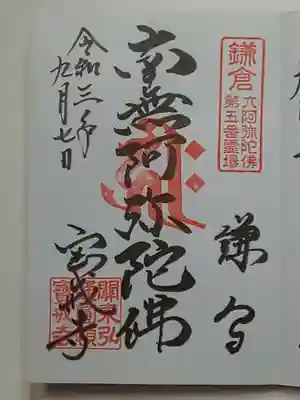 鎌倉
六阿弥陀佛
第五番霊場
南無阿弥陀佛
宝戒寺
關東弘
寶戒寺
令和三年
九月七日